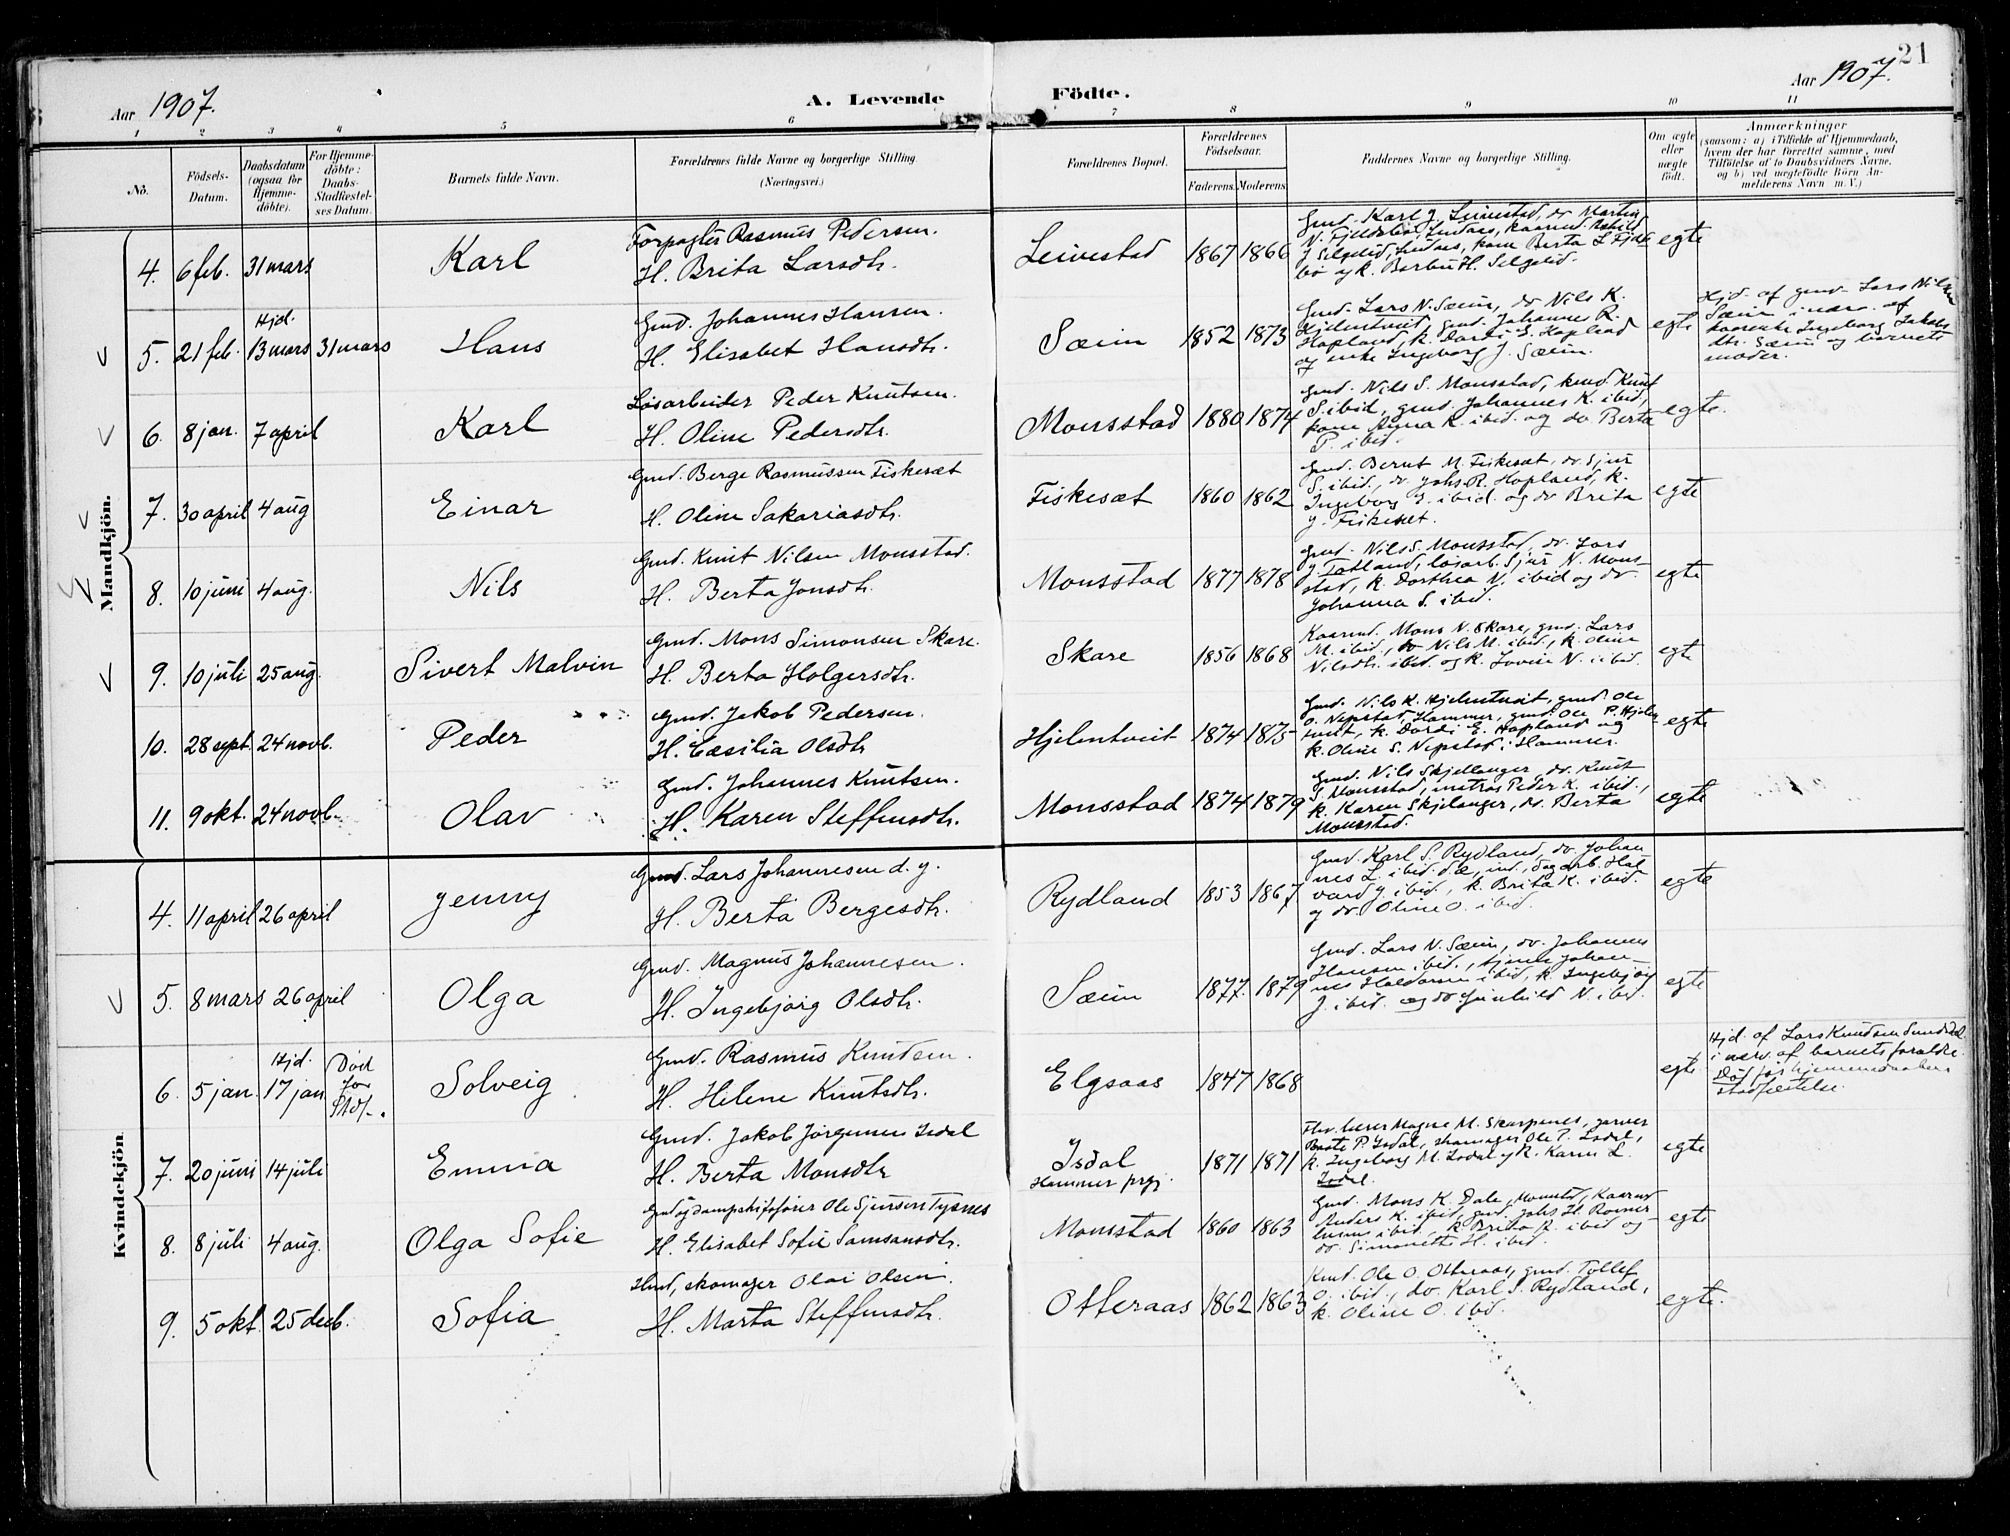 21
Aar 1907.
A. Levende Födte.
Aar 1907.
1 2 3 4 5 6 7 8 9 10 11
No.
Födsels-Datum.
Daabsdatum (ogsaa for Hjemme-döbte).
For Hjemme-döbte: Daabs-Stadfæstel-ses Datum.
Barnets fulde Navn.
Forældrenes fulde Navne og borgerlige Stilling. (Næringsvei.)
Forældrenes Bopæl.
Forældrenes Födselsaar.
Faderens. Moderens.
Faddernes Navne og borgerlige Stilling.
Om ægte eller uægte födt.
Anmærkninger
(saasom: a) i Tilfælde af Hjemmedaab, hvem der har forrettet samme, med Tilföielse af to Daabsvidners Navne, og b) ved uægtefödte Börn An-melderens Navn m. V.)
Mandkjön.
4. 6 feb. 31 mars Karl
Forpagter Rasmus Pedersen.
H. Brita Larsdtr.
Leivestad 1867 1866
Gmd. Karl J. Leivestad, do Martin
egte
5. 21 feb. Hjd. 13 mars 31 mars Hans
Gmd. Johannes Hansen.
H. Elisabet Hansdtr.
Sæim 1852 1873
Gmd. Lars N. Sæim, do Nils K.
Hjelmtveit, gmd. Johannes R.
Hopland, k. Dordi E. Hopland
og enke Ingeborg J. Sæim.
egte
Hjd. af gmd. Lars Nilsen
Sæim i nærv. af
Ingeborg Jakobs
dtr. Sæim og barnets
moder.
6. 8 jan. 7 april Karl
Løsarbeider Peder Knutsen.
H. Oline Pedersdtr.
Monsstad 1880 1874
Gmd. Nils S. Monsstad, Knut
S. ibid, gmd. Johannes K. ibid,
kone K. ibid og do Berta
P. ibid.
egte.
7. 30 april 4 aug Einar
Gmd. Berge Rasmussen Fiskesæt
H. Oline Sakariasdtr.
Fiskesæt 1860 1862
Gmd. Bernt M. Fiskesæt, do Sjur
S. ibid., do Johs R. Hopland, k.
Ingeborg S. ibid. og do Brita
J. Fiskesæt.
egte
8. 10 juni 4 aug. Nils
Gmd. Knut Nilsen Monsstad.
H. Berta Jonsdtr.
Monsstad 1877 1878
Gmd. Nils S. Monsstad, do Lars
J. Totland, løsarb. Sjur N. Mons-
stad, k. Dorthea N. ibid og do.
Johanna S. ibid.
egte
9. 10 juli 25 aug. Sivert Malvin
Gmd. Mons Simonsen Skare.
H. Berta Holgersdtr.
Skare 1856 1868
Kaarmd. Mons N. Skare, gmd. Lars
M. ibid., do Nils M. ibid., k. Oline
Nilsdtr. ibid. og k. Lovise N. ibid.
egte
10. 28 sept. 24 novb. Peder
Gmd. Jakob Pedersen.
H. Cæsilia Olsdtr
Hjelmtveit 1874 1875
Gmd. Nils K. Hjelmtveit, gmd. Ole
O. Nepstad, Hammer, gmd. Ole P. Hjelm
tveit, k. Dordi E. Hopland og
k. Oline S. Nepstad i Hammer.
egte
11. 9 okt. 24 novb. Olav
Gmd. Johannes Knutsen.
H. Karen Steffensdtr.
Monsstad 1874 1879
Gmd. Nils Skjellanger, do. Knut
S. Monsstad, matros Peder K. ibid.,
k. Karen Skjelanger, do. Berta
Monsstad.
egte
Kvindekjön.
4. 11 april 26 april Jenny
Gmd. Lars Johannesen d. y.
H. Berta Bergesdtr.
Rydland 1853 1867
Gmd. Karl S. Rydland, do. Johan
nes L. ibid. d.æ., ind., dagarb. Hal
vard J. ibid., k. Brita K. ibid.
og do. Oline O. ibid.
egte
5. 8 mars 26 april Olga
Gmd. Magnus Johannesen.
H. Ingebjørg Olsdtr.
Sæim 1877. 1879
Gmd. Lars N. Sæim, do. Johannes
Hansen ibid., Johan-
nes ibid, k. Ingebjørg
J. ibid. og do Gunhild N. ibid.
egte
6. 5 jan. Hjd. 17 jan Død før Stdf. Solveig
Gmd. Rasmus Knudsen.
H. Helene Knutsdtr.
Elgsaas 1847 1868
egte
Hjd. af Lars Knudsen
i nærv. af barnets forældre.
Død før hjemmedaabens
stadfæstelse.
7. 20 juni 14 juli Emma
Gmd. Jakob Jørgensen Isdal
H. Berta Monsdtr
Isdal
Hammer prgj.
1871 1871
lærer Magne M. Skarpenes, garver
P. Isdal, skomager Ole P. Isdal,
k. Ingeborg M. Isdal og k. Karen L.
Isdal.
egte
8. 8 juli 4 aug. Olga Sofie
Gmd og dampskibsfører Ole Sjursen Tysnes
H. Elisabet Sofie Samsonsdtr.
Monsstad 1860 1863
Gmd. Mons K. Dale, Monsstad, Kaarmd
Anders K. ibid, gmd. Johs H. Romar
heim ibid, k. Brita R. ibid og
do. Simonette H. ibid.
egte
9. 5 okt. 25 decb. Sofia
Husmd, skomager Olai Olsen.
H. Marta Steffensdtr.
Otteraas 1862 1863
Kmd. Ole O. Otteraas, gmd. Tollef
O. ibid., do. Karl S. Rydland,
k. Oline O. ibid.
egte.